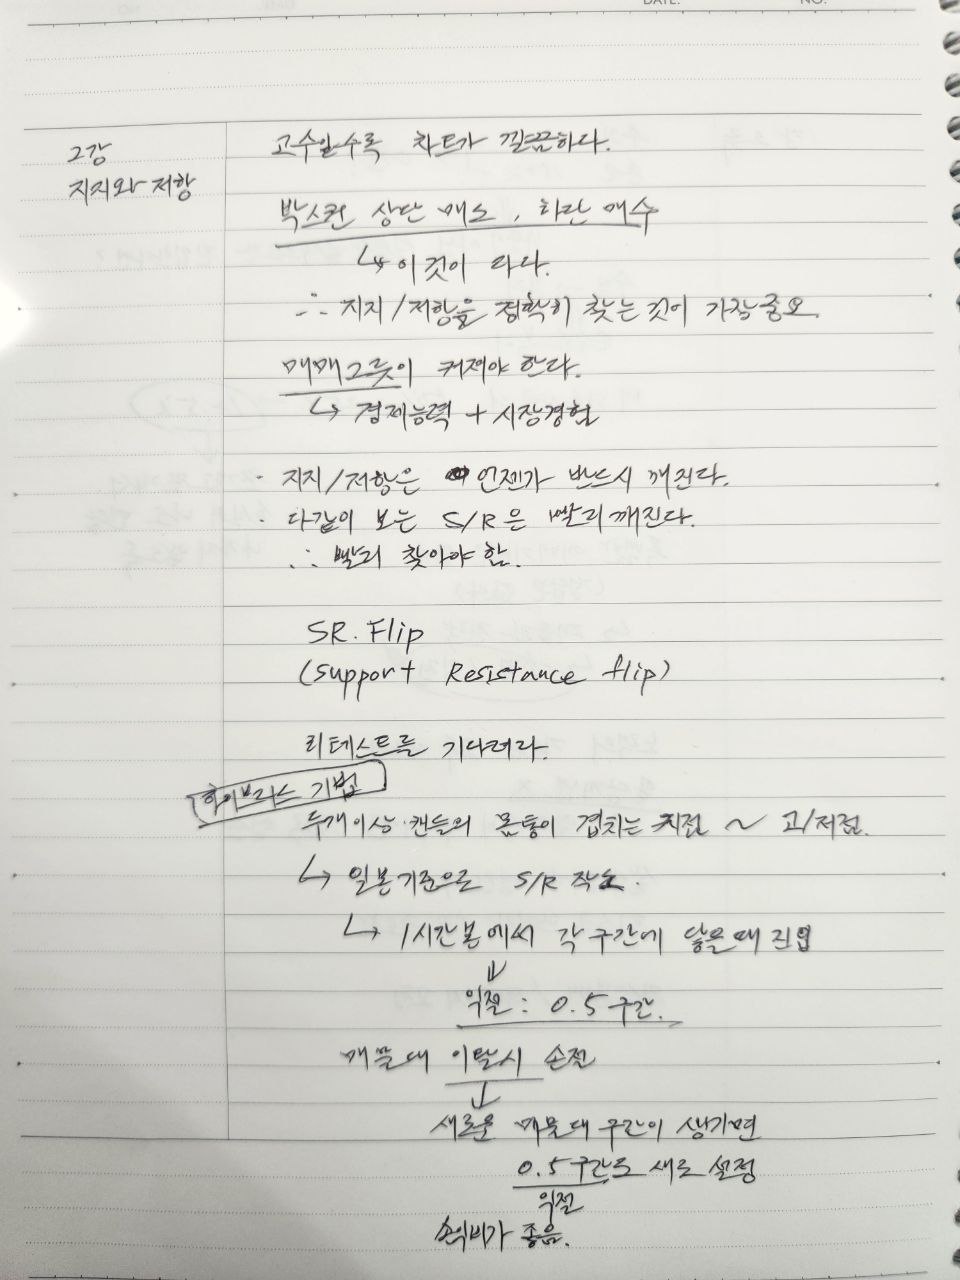 2강
지지와 저항
고수일수록 차트가 깔끔하다.
박스권 상단 매도, 하단 매수
↳ 이것이 다다.
∴ 지지/저항을 정확히 찾는 것이 가장 중요.
매매그릇이 커져야 한다.
↳ 경제능력 + 시장경험
· 지지/저항은 언젠가 반드시 깨진다.
· 다같이 보는 S/R은 빨리 깨진다.
∴ 빨리 찾아야 함.
SR. Flip
(Support Resistance flip)
리테스트를 기다려라.
하이브리드 기법
두개이상 캔들의 몸통이 겹치는 지점 ~ 고/저점.
↳ 일봉기준으로 S/R 작도.
↳ 1시간봉에서 각 구간에 닿을때 진입
↓
익절 : 0.5 구간.
매물대 이탈시 손절
↓
새로운 매물대 구간이 생기면
0.5 구간도 새로 설정
익절
손익비가 좋음.